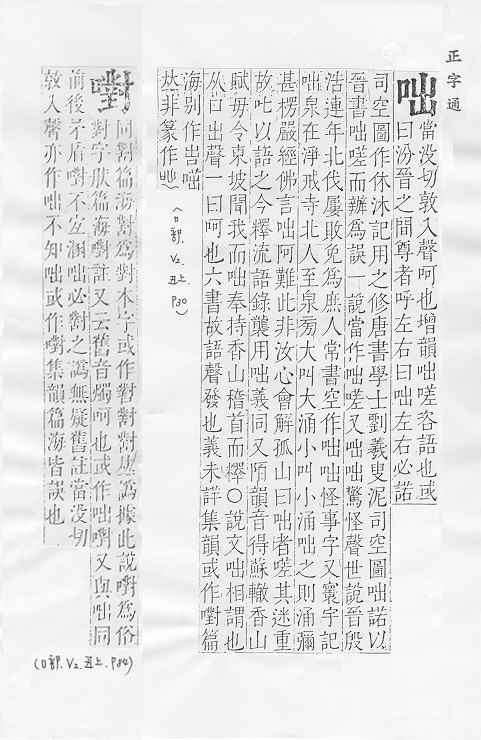 正字通
咄
當没切敦入聲呵也增韻咄嗟咨語也或
曰汾晉之間尊者呼左右曰咄左右必諾
司空圖作休休記用之修唐書學士劉羲叟泥司空圖咄諾以
晉書咄嗟而辦爲誤一說當作咄嗟又咄咄驚怪聲世說晉殷
浩連年北伐屢敗免爲庶人常書空作咄咄怪事字又寰宇記
咄泉在淨戒寺北人至泉旁大叫大涌小叫小涌咄之則涌彌
甚楞嚴經佛言咄阿難此非汝心會解孤山曰咄者嗟其迷重
故叱以語之今釋流語錄襲用咄義同又陌韻音得蘇轍香山
賦毋令東坡聞我而咄奉持香山稽首而釋○說文咄相謂也
从口出聲一曰呵也六書故語聲發也義未詳集韻或作嚉篇
海别作
𠀤非篆作
(口部.V2.丑上.P30)
嚉
同對篇海對爲對本字或作對對對𠀤爲據此說嚉爲俗
對字肰篇海嚉註又云舊音燭呵也或作咄嚉又與咄同
前後矛盾嚉不宜溷咄必對之譌無疑舊註當没切
敦入聲亦作咄不知咄或作嚉集韻篇海皆誤也
(口部.V2.丑上.P84)